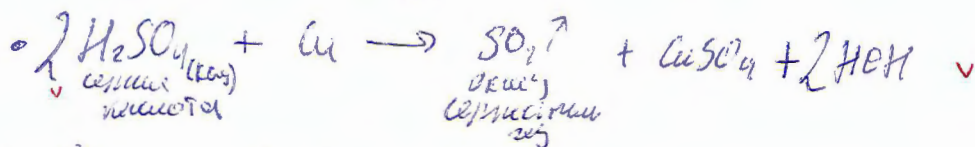 • 2H₂SO₄(конц) + Cu → SO₂↑ + CuSO₄ + 2HOH
серная кислота сернистый газ